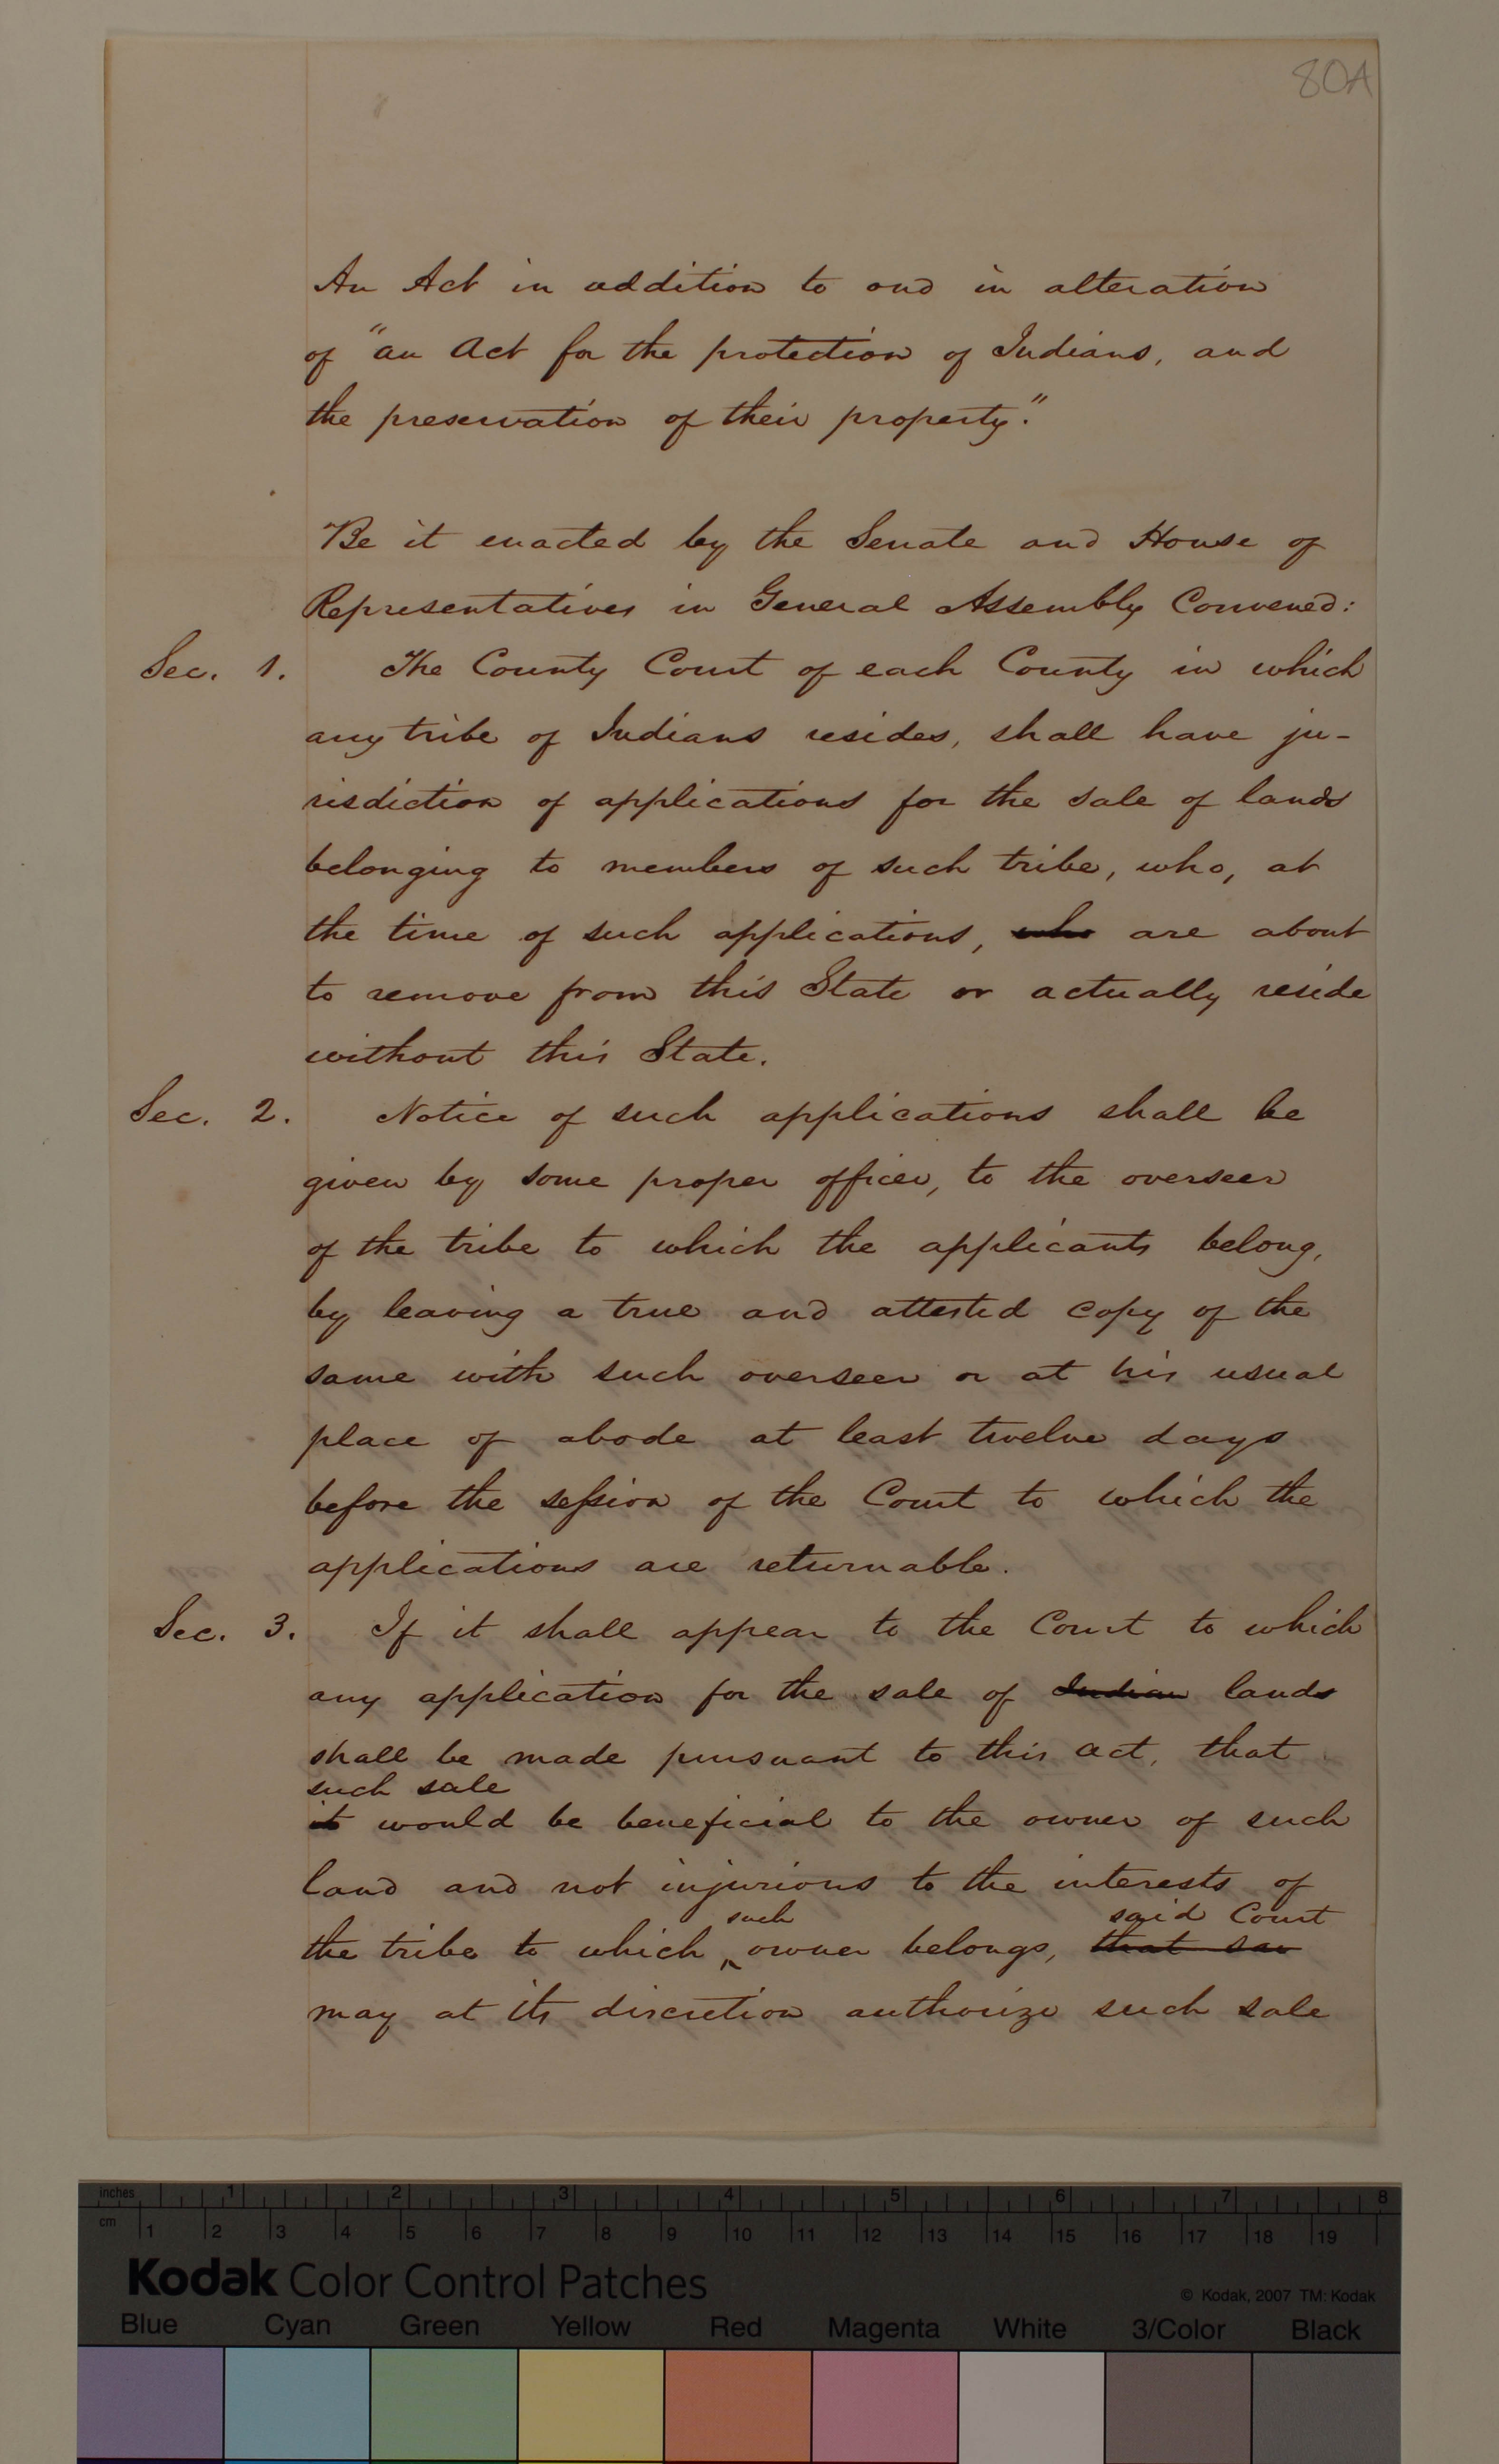 80A
An Act in addition to and in alteration
of "an Act for the protection of Indians, and
the preservation of their property."
Be it enacted by the Senate and House of
Representatives in General Assembly Convened:
Sec. 1. The County Court of each County in which
any tribe of Indians resides, shall have ju-
risdiction of applications for the sale of lands
belonging to members of such tribe, who, at
the time of such applications, who are about
to remove from this State or actually reside
without this State.
Sec. 2. Notice of such applications shall be
given by some proper officer, to the overseer
of the tribe to which the applicants belong,
by leaving a true and attested copy of the
same with such overseer or at his usual
place of abode at least twelve days
before the session of the Court to which the
applications are returnable.
Sec. 3. If it shall appear to the Court to which
any application for the sale of Indian lands
shall be made pursuant to this act, that
such sale
it would be beneficial to the owner of such
land and not injurious to the interests of
such said Court
the tribe to which ‸ owner belongs, that sa
may at its discretion authorize such sale
inches 1 2 3 4 5 6 7 8
cm 1 2 3 4 5 6 7 8 9 10 11 12 13 14 15 16 17 18 19
Kodak Color Control Patches
© Kodak, 2007 TM: Kodak
Blue Cyan Green Yellow Red Magenta White 3/Color Black